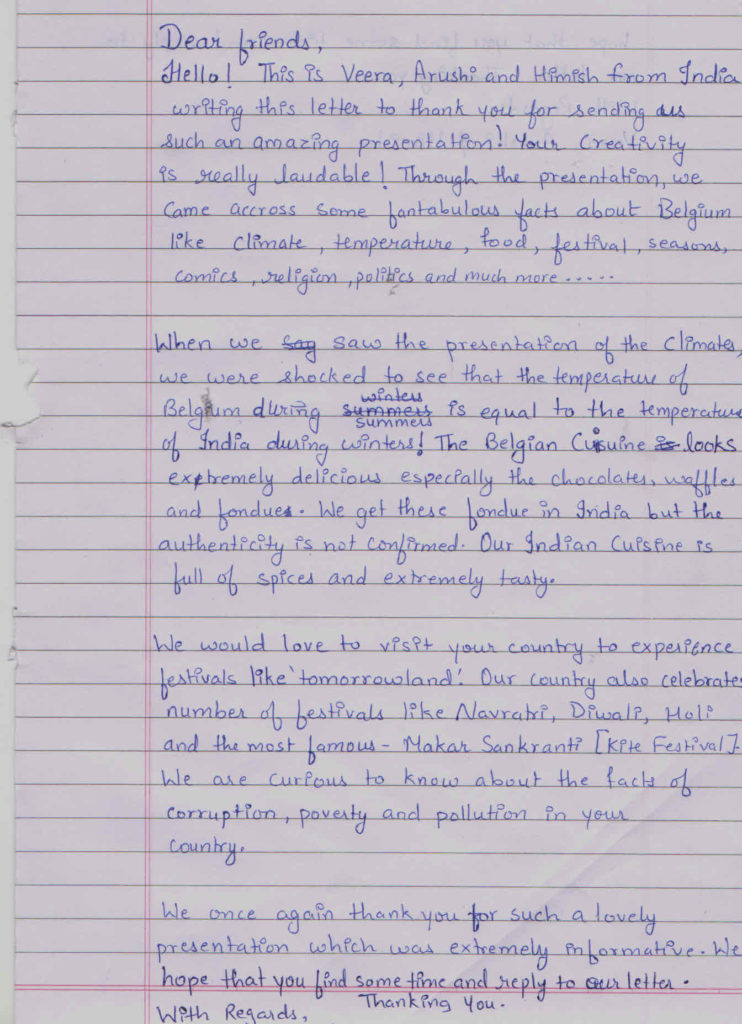 Dear friends,
Hello! This is Veera, Arushi and Himish from India
writing this letter to thank you for sending us
such an amazing presentation! Your Creativity
is really laudable! Through the presentation, we
Came accross some fantabulous facts about Belgium
like Climate, temperature, food, festival, seasons,
comics, religion, politics and much more.....
When we say saw the presentation of the Climates,
we were shocked to see that the temperature of
winters
Belgium during summers is equal to the temperature
summers
of India during winters! The Belgian Cuisuine is looks
extremely delicious especially the chocolates, waffles
and fondues. We get these fondue in India but the
authenticity is not Confirmed. Our Indian Cuisine is
full of spices and extremely tasty.
We would love to visit your country to experience
festivals like 'tomorrowland'. Our country also celebrates
number of festivals like Navratri, Diwali, Holi
and the most famous - Makar Sankranti [Kite Festival].
We are curious to know about the facts of
corruption, poverty and pollution in your
Country.
We once again thank you for such a lovely
presentation which was extremely informative. We
hope that you find some time and reply to our letter.
Thanking You.
With Regards,